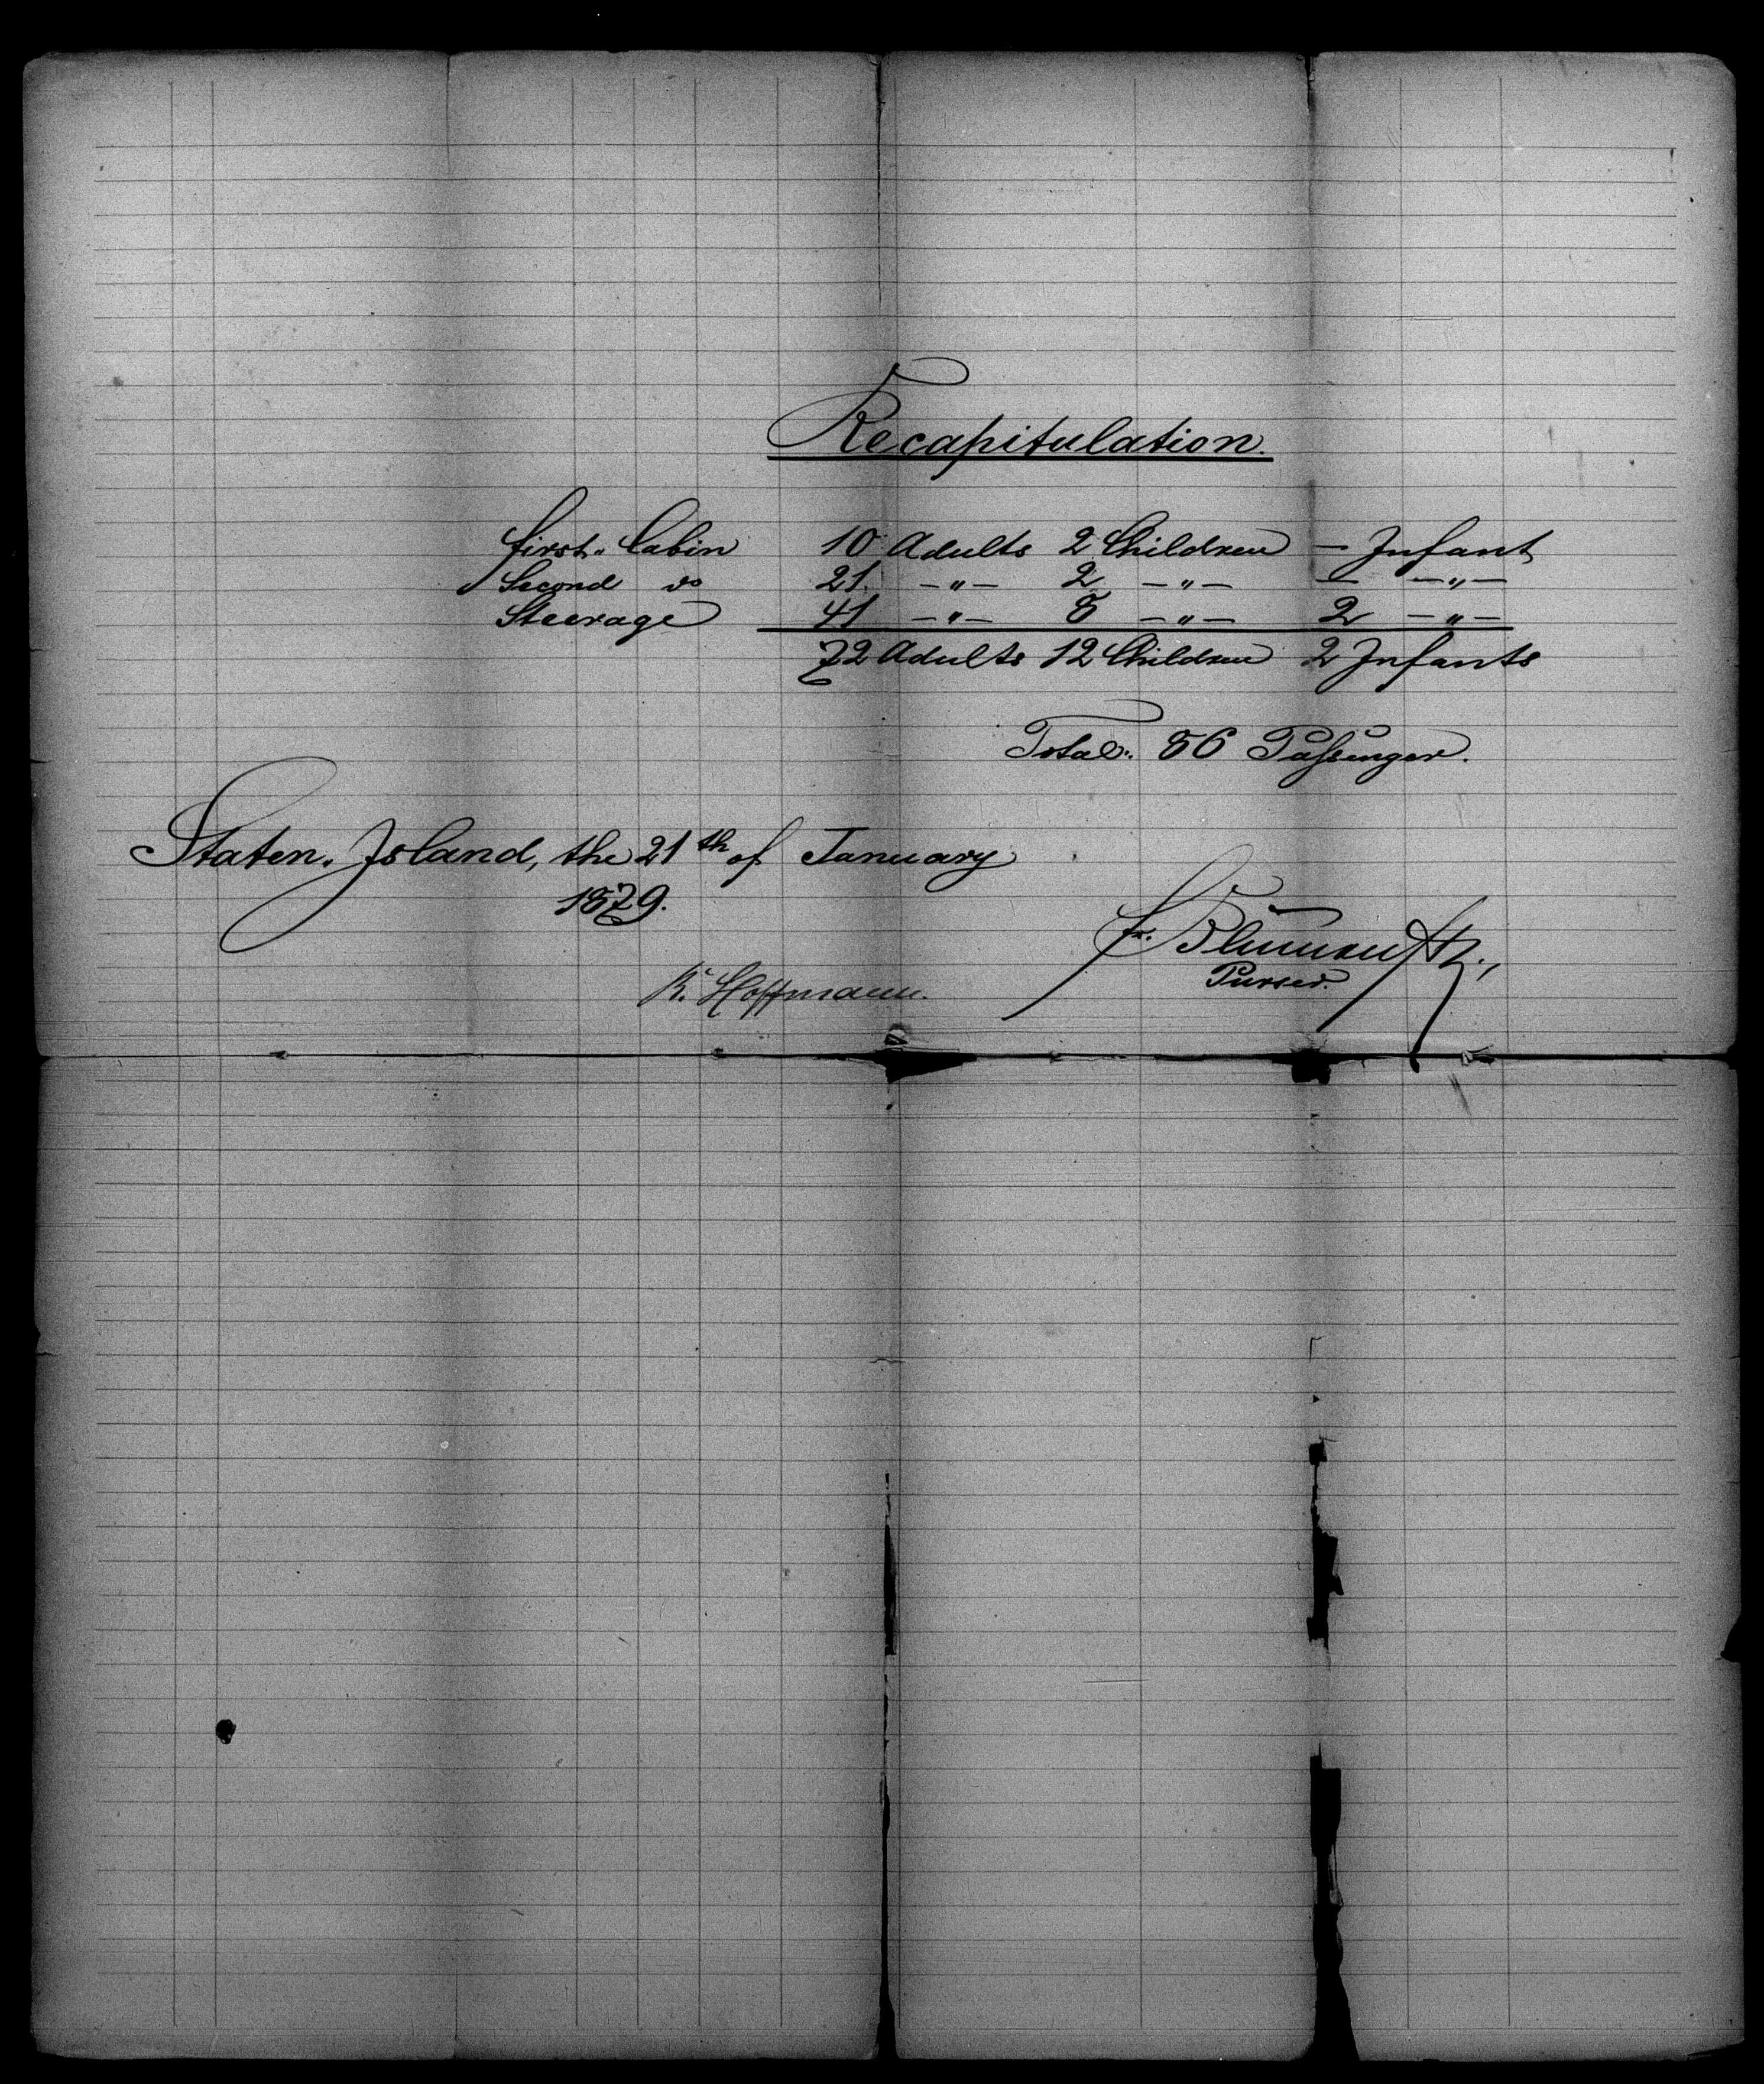 Recapitulation.
First. Cabin 10 Adults 2 Children — Infant
Second do 21. —"— 2 —"— — —"—
Steerage 41 —"— 8 —"— 2 —"—
72 Adults 12 Children 2 Infants
Total: 86 Passenger.
Staten. Island, the 21th of January
1879.
K. Hoffmann.
Purser.